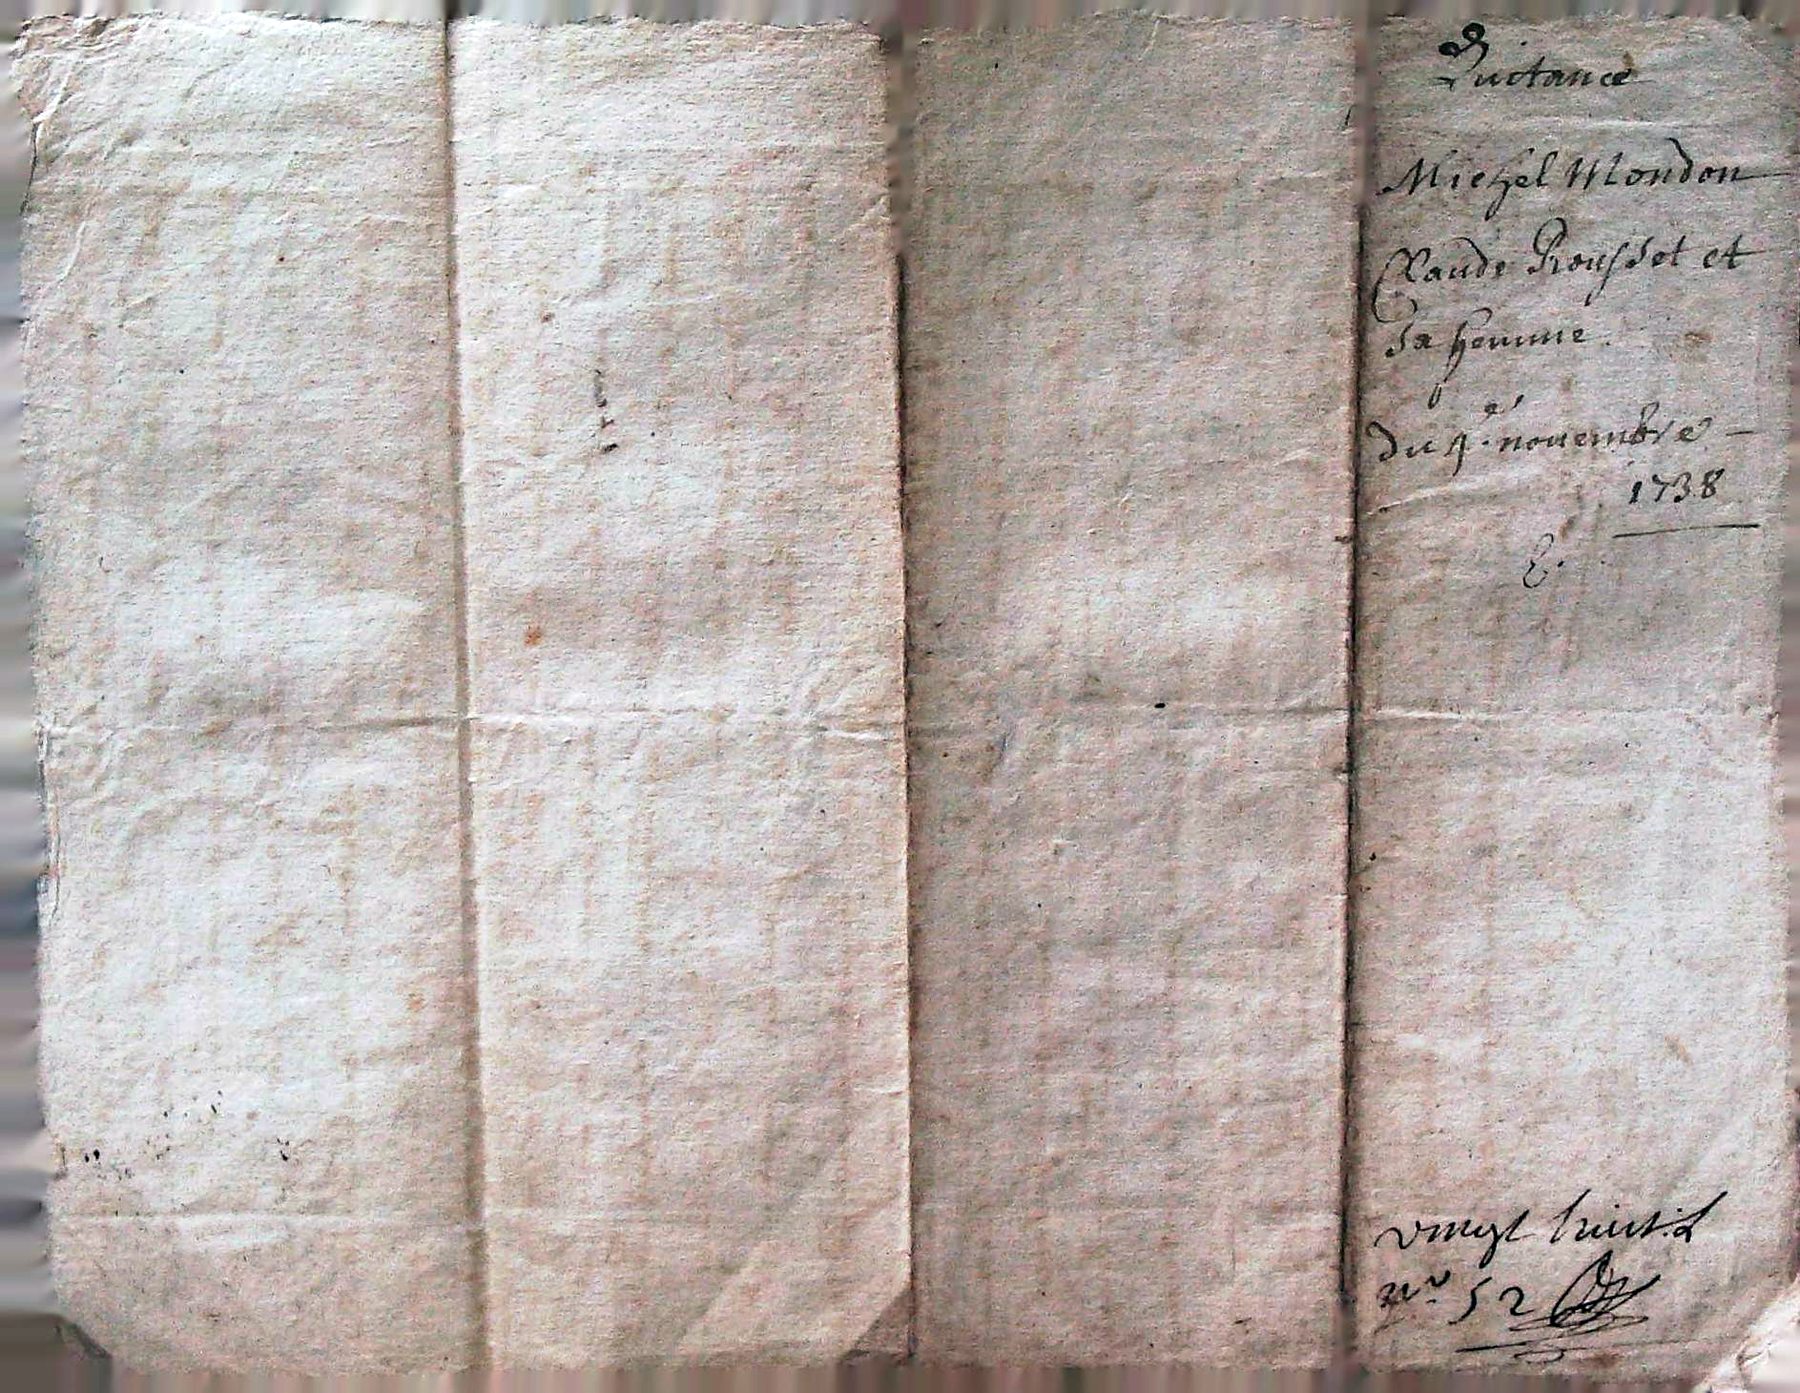 Quictance
Michel Mondon
Claude Rousset et
Sa femme.
du novembre
1738
E.
vingt huit
n° 52